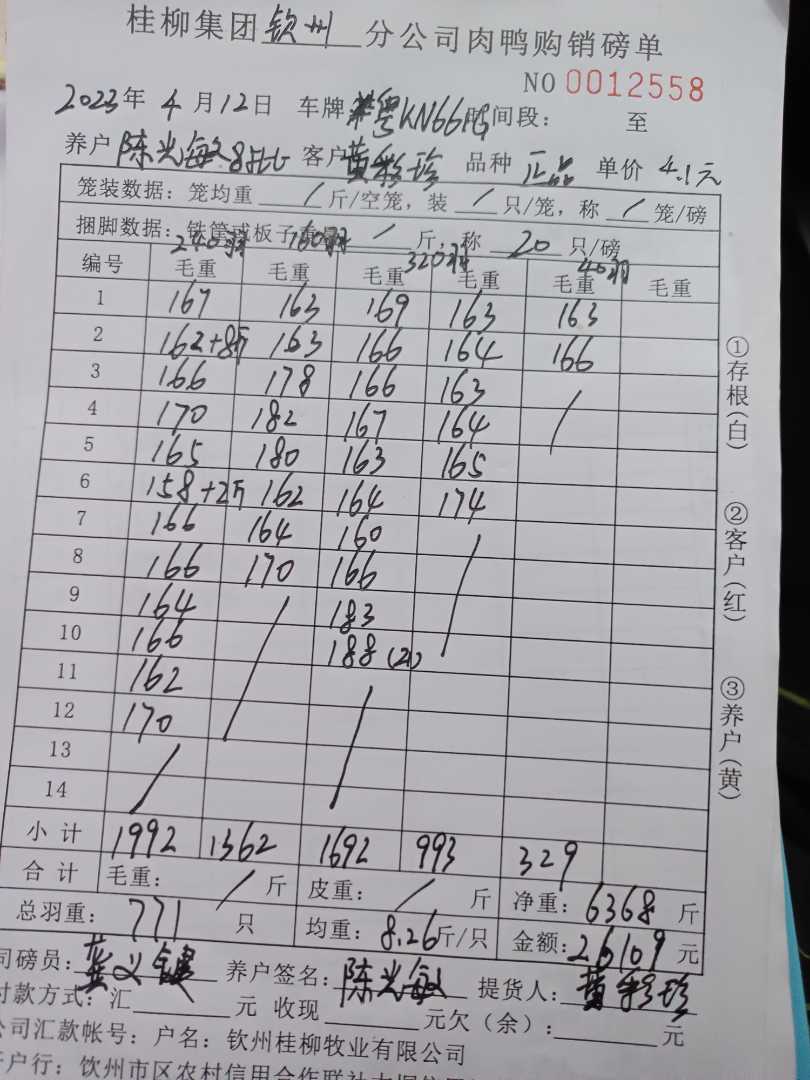 桂柳集团 钦州 分公司肉鸭购销磅单
NO 0012558
2023年 4月12日 车牌 粤KN66 时间段： 至
养户 陈光敏 客户 黄彩珍 品种 正品 单价 4.1元
笼装数据：笼均重 / 斤/空笼，装 / 只/笼，称 / 笼/磅
捆脚数据：铁管或板子重 / 斤，称 20 只/磅
240羽 160羽 320羽 40羽
编号 毛重 毛重 毛重 毛重 毛重 毛重
1 167 163 169 163 163
2 162+8斤 163 166 164 166
3 166 178 166 163 /
4 170 182 167 164
5 165 180 163 165
6 158+2斤 162 164 174
7 166 164 160 /
8 166 170 166
9 164 / 183
10 166 188 (21)
11 162 /
12 170
13 /
14
小计 1992 1362 1692 993 329
合计 毛重： / 斤 皮重： / 斤 净重：6368 斤
总羽重： 771 只 均重：8.26斤/只 金额：26109 元
司磅员： 养户签名：陈光敏 提货人：黄彩珍
付款方式：汇 元 收现 元欠（余）： 元
公司汇款帐号：户名：钦州桂柳牧业有限公司
开户行：钦州市区农村信用合作联社
①存根(白)
②客户(红)
③养户(黄)